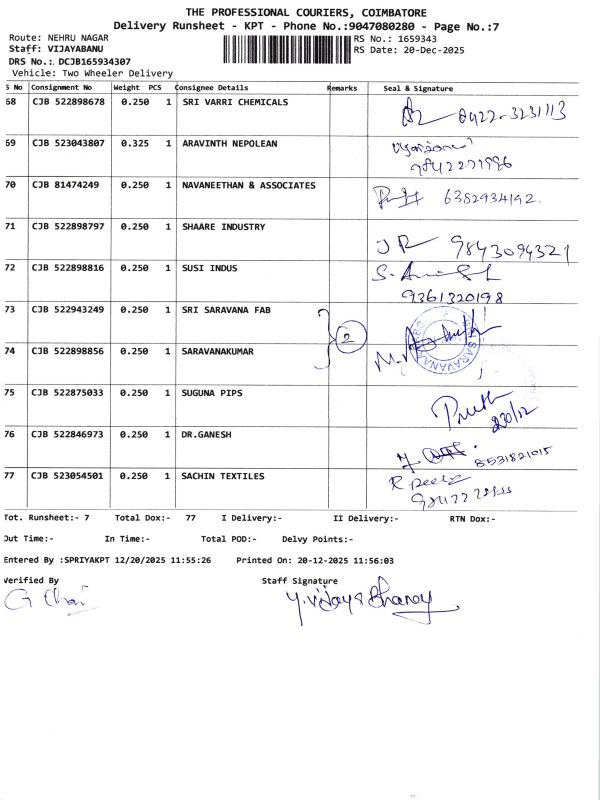 THE PROFESSIONAL COURIERS, COIMBATORE
Delivery Runsheet - KPT - Phone No.:9047080280 - Page No.:7
Route: NEHRU NAGAR
RS No.: 1659343
Staff: VIJAYABANU
RS Date: 20-Dec-2025
DRS No.:. DCJB165934307
Vehicle: Two Wheeler Delivery
S No Consignment No Weight PCS Consignee Details Remarks Seal & Signature
68 CJB 522898678 0.250 1 SRI VARRI CHEMICALS 0422-3231113
69 CJB 523043807 0.325 1 ARAVINTH NEPOLEAN
9842271996
70 CJB 81474249 0.250 1 NAVANEETHAN & ASSOCIATES 6382934192.
71 CJB 522898797 0.250 1 SHAARE INDUSTRY
JR 9843094321
72 CJB 522898816 0.250 1 SUSI INDUS
9361320198
73 CJB 522943249 0.250 1 SRI SARAVANA FAB
2
74 CJB 522898856 0.250 1 SARAVANAKUMAR
75 CJB 522875033 0.250 1 SUGUNA PIPS
76 CJB 522846973 0.250 1 DR.GANESH
8531821015
77 CJB 523054501 0.250 1 SACHIN TEXTILES
Tot. Runsheet:- 7 Total Dox:- 77 I Delivery:- II Delivery:- RTN Dox:-
Out Time:- In Time:- Total POD:- Delvy Points:-
Entered By :SPRIYAKPT 12/20/2025 11:55:26 Printed On: 20-12-2025 11:56:03
Verified By Staff Signature